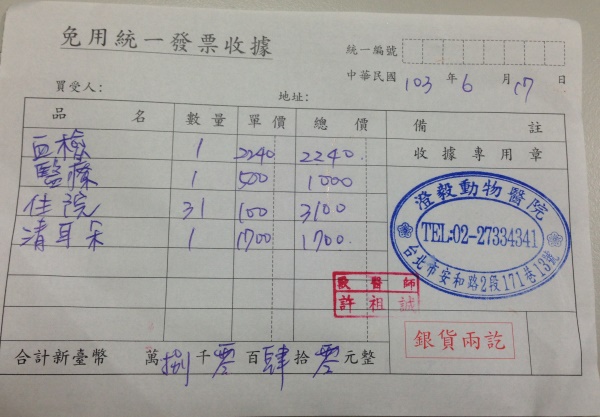 免用統一發票收據
統一編號
中華民國 103 年 6 月 17 日
買受人：
地址：
品名 數量 單價 總價 備註
收據專用章
血檢 1 2240 2240.
醫療 1 500 1000
住院 31 100 3100
清耳朵 1 1700 1700
澄毅動物醫院
TEL:02-27334341
台北市安和路2段171巷13號
獸醫師
許祖誠
銀貨兩訖
合計新臺幣 萬捌千零百肆拾零元整